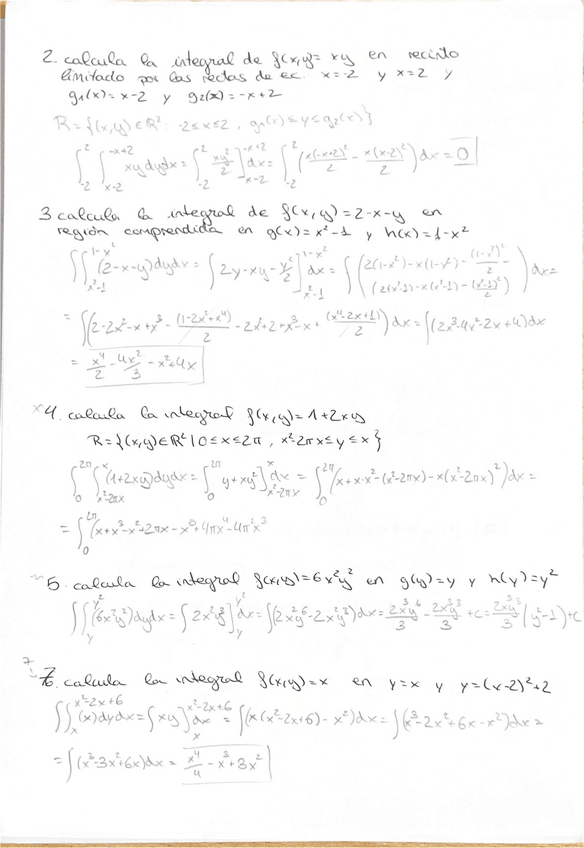 2. calcula la integral de f(x,y)= xy en recinto
limitado por las rectas de ec. x=-2 y x=2 y
g₁(x)=x-2 y g₂(x)=-x+2
R={(x,y)∈R²: -2≤x≤2, g₁(x)≤y≤g₂(x)}
∫₋₂² ∫ₓ₋₂⁻ˣ⁺² xy dy dx = ∫₋₂² xy²/2 ]ₓ₋₂⁻ˣ⁺² dx = ∫₋₂² (x(-x+2)²/2 - x(x-2)²/2) dx = 0
3 calcula la integral de f(x,y)=2-x-y en
región comprendida en g(x)=x²-1 y h(x)=1-x²
∫∫_{x²-1}^{1-x²} (2-x-y)dydx = ∫ 2y-xy-y²/2 ]_{x²-1}^{1-x²} dx = ∫ (2(1-x²)-x(1-x²)-(1-x²)²/2 - (2(x²-1)-x(x²-1)-(x²-1)²/2)) dx =
= ∫(2-2x²-x+x³-(1-2x²+x⁴)/2 - 2x²+2+x³-x+(x⁴-2x²+1)/2) dx = ∫(2x³-4x²-2x+4)dx
= x⁴/2 - 4x²/3 - x²+4x
x4. calcula la integral f(x,y)=1+2xy
R={(x,y)∈R² | 0≤x≤2π, x²-2πx≤y≤x}
∫₀^{2π} ∫_{x²-2πx}^{x} (1+2xy)dydx = ∫₀^{2π} y+xy² ]_{x²-2πx}^{x} dx = ∫₀^{2π} (x+x·x²-(x²-2πx)-x(x²-2πx)²)dx =
= ∫₀^{2π} (x+x³-x²+2πx-x⁵+4πx⁴-4π²x³
5. calcula la integral f(x,y)=6x²y² en g(y)=y y h(y)=y²
∫∫_{y}^{y²} (6x²y²)dydx = ∫ 2x²y³ ]_{y}^{y²} dx = ∫(2x²y⁶-2x²y³)dx = 2x³y⁶/3 - 2x³y³/3 + c = 2x³y³/3 (y³-1)+c
7. calcula la integral f(x,y)=x en y=x y y=(x-2)²+2
∫∫_{x}^{x²-2x+6} (x)dydx = ∫ xy ]_{x}^{x²-2x+6} dx = ∫(x(x²-2x+6)-x²)dx = ∫(x³-2x²+6x-x²)dx =
= ∫(x³-3x²+6x)dx = x⁴/4 - x³+3x²